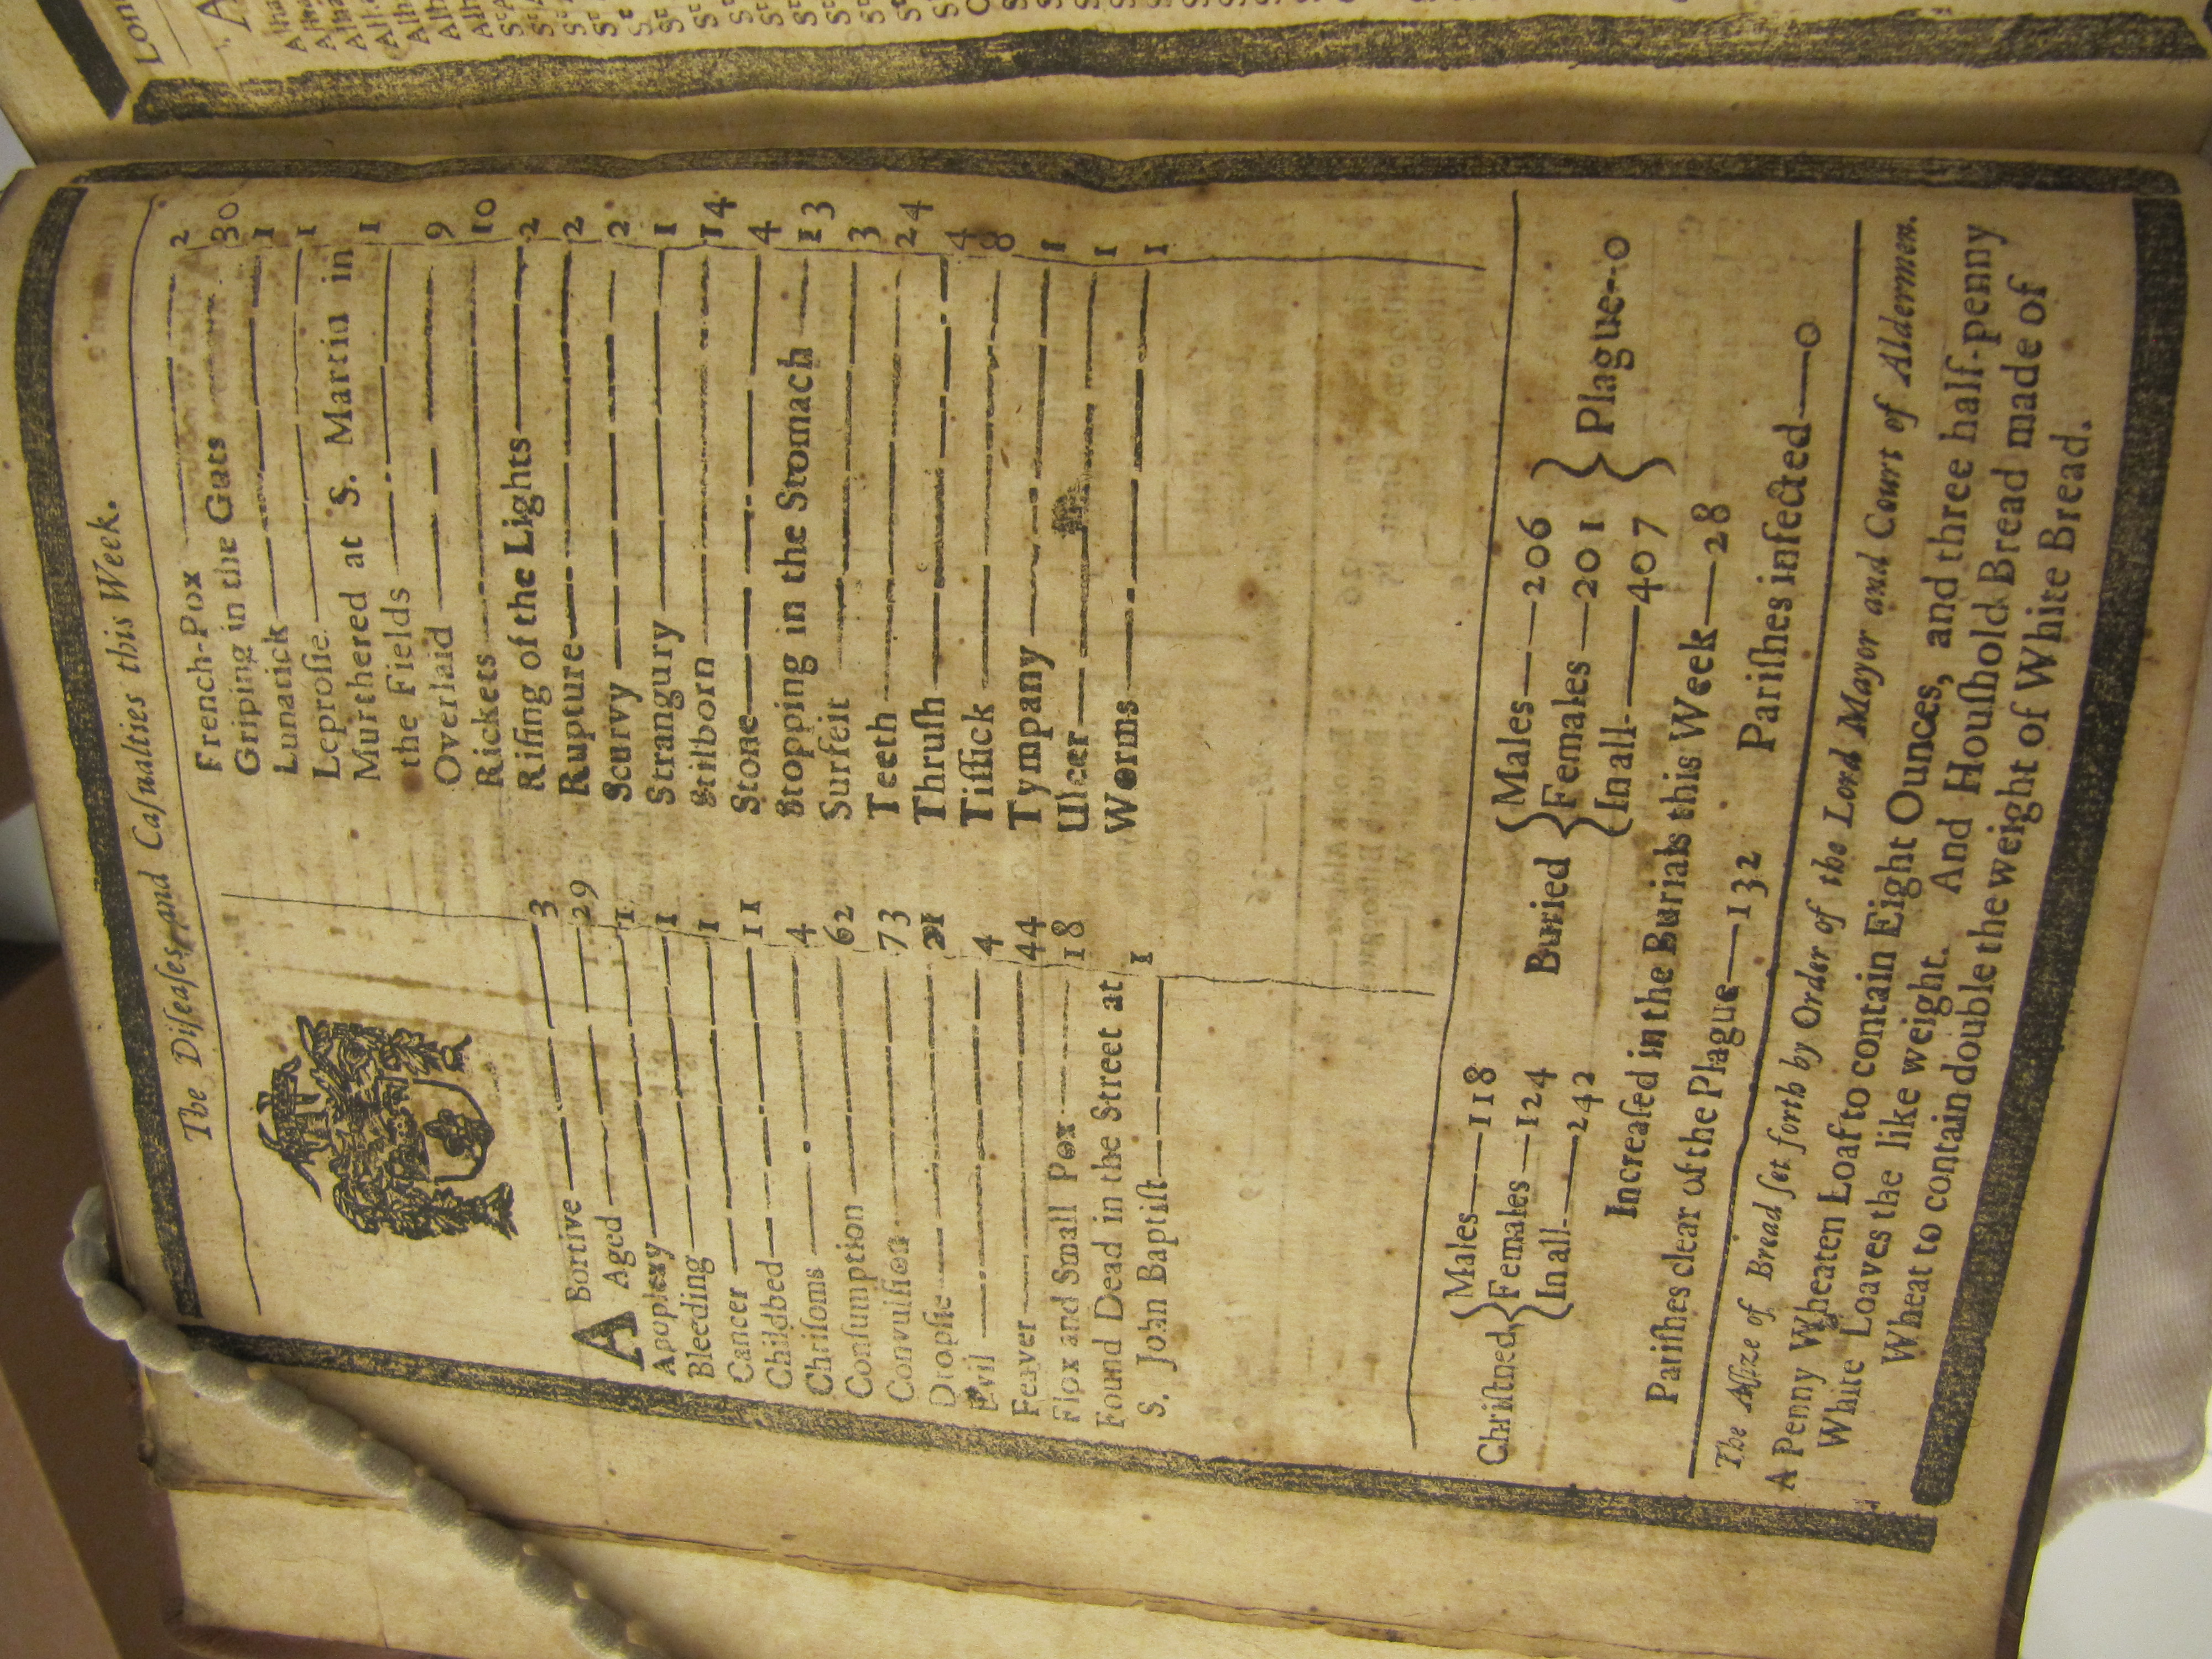 The Diſeaſes and Caſualties this Week.
ABortive 3
Aged 29
Apoplexy 1
Bleeding 1
Cancer 1
Childbed 11
Chriſoms 4
Conſumption 62
Convulſion 73
Dropſie 21
Evil 4
Feaver 44
Flox and Small Pox 18
Found Dead in the Street at
S. John Baptiſt 1
French-Pox 2
Griping in the Guts 30
Lunatick 1
Leproſie 1
Murthered at S. Martin in
the Fields 1
Overlaid 9
Rickets 10
Riſing of the Lights 2
Rupture 2
Scurvy 2
Strangury 1
Stilborn 14
Stone 4
Stopping in the Stomach 13
Surfeit 3
Teeth 24
Thruſh 4
Tiſſick 8
Tympany 1
Ulcer 1
Worms 1
Chriſtned { Males—118
Females—124
In all—242
Buried { Males—206
Females—201
In all—407 } Plague--0
Increaſed in the Burials this Week—28
Pariſhes clear of the Plague—132 Pariſhes infected—0
The Aſſize of Bread ſet forth by Order of the Lord Mayor and Court of Aldermen.
A Penny Wheaten Loaf to contain Eight Ounces, and three half-penny
White Loaves the like weight. And Houſhold Bread made of
Wheat to contain double the weight of White Bread.